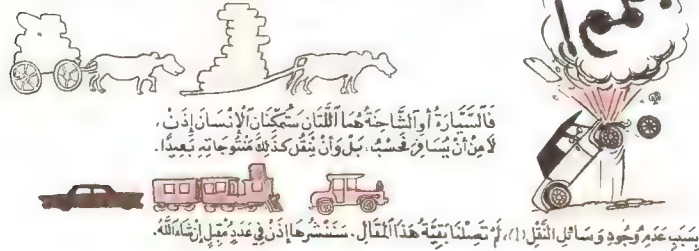 فَالسَّيَّارَةُ أَوِ ٱلشَّاحِنَةُ هُمَا ٱللَّتَانِ سَتُمَكِّنَانِ ٱلْإِنْسَانَ إِذَنْ،
لَا مِنْ أَنْ يُسَافِرَ فَحَسْبُ، بَلْ وَأَنْ يَنْقُلَ كَذَلِكَ مَنْتُوجَاتِهِ بَعِيدًا.
بِسَبَبِ عَدَمِ وُجُودِ وَسَائِلِ النَّقْلِ (!)، لَمْ تَصِلْنَا بَقِيَّةُ هَذَا ٱلْمَقَالِ. سَنَنْشُرُهَا إِذَنْ فِي عَدَدٍ مُقْبِلٍ إِنْ شَاءَ ٱللَّهُ.